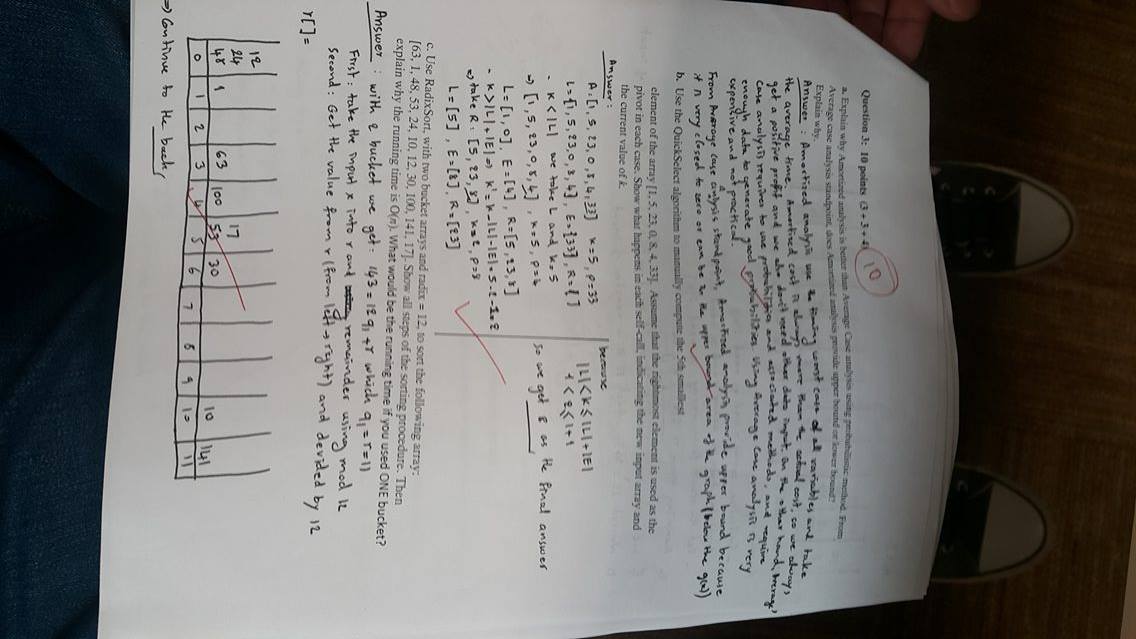 Question 3: 10 points (3 + 3 + 4)
10
a. Explain why Amortized analysis is better than Average Case analysis using probabilistic method. From
Average case analysis standpoint, does Amortized analysis provide upper bound or lower bound?
Explain why.
Answer : Amortized analysis use the timing worst case of all variables and take
the average time. Amortized cost is always more than the actual cost, so we always
get a positive profit and we also don't need other data input. On the other hand, Average
Case analysis requires to use probabilities and associated methods, and require
enough data to generate good probabilities. Using Average Case analysis is very
expensive and not practical.
From Average case anlysis standpoint, Amortized analysis provide upper bound because
it is very closed to zero or can be in the upper bound area of the graph (below the g(x))
b. Use the QuickSelect algorithm to manually compute the 5th smallest
element of the array [1, 5, 23, 0, 8, 4, 33]. Assume that the rightmost element is used as the
pivot in each case. Show what happens in each self-call, indicating the new input array and
the current value of k.
Answer :
A: [1, 5, 23, 0, 8, 4, 33] k=5, p=33
L={1, 5, 23, 0, 8, 4}, E={33}, R={ }
- K < |L| we take L and k=5
=> [1, 5, 23, 0, 8, 4] , k=5, p=4
L=[1, 0], E=[4], R=[5, 23, 8]
- k>|L|+|E| => k'=k-|L|-|E|=5-2-1=2
=> take R: [5, 23, 8], k=2, p=8
L=[5], E=[8], R=[23]
because
|L|<k≤|L|+|E|
1<2≤1+1
so we get 8 as the final answer
c. Use RadixSort, with two bucket arrays and radix = 12, to sort the following array:
[63, 1, 48, 53, 24, 10, 12, 30, 100, 141, 17]. Show all steps of the sorting procedure. Then
explain why the running time is O(n). What would be the running time if you used ONE bucket?
Answer : with 2 bucket we get: 143 = 12q1 + r which q1=r=11
First : take the input x into r and remainder using mod 12
Second : Get the value from r (from left → right) and devided by 12
r[]=
12
24 17
48 1 63 100 53 30 10 141
0 1 2 3 4 5 6 7 8 9 10 11
=> Continue to the back,